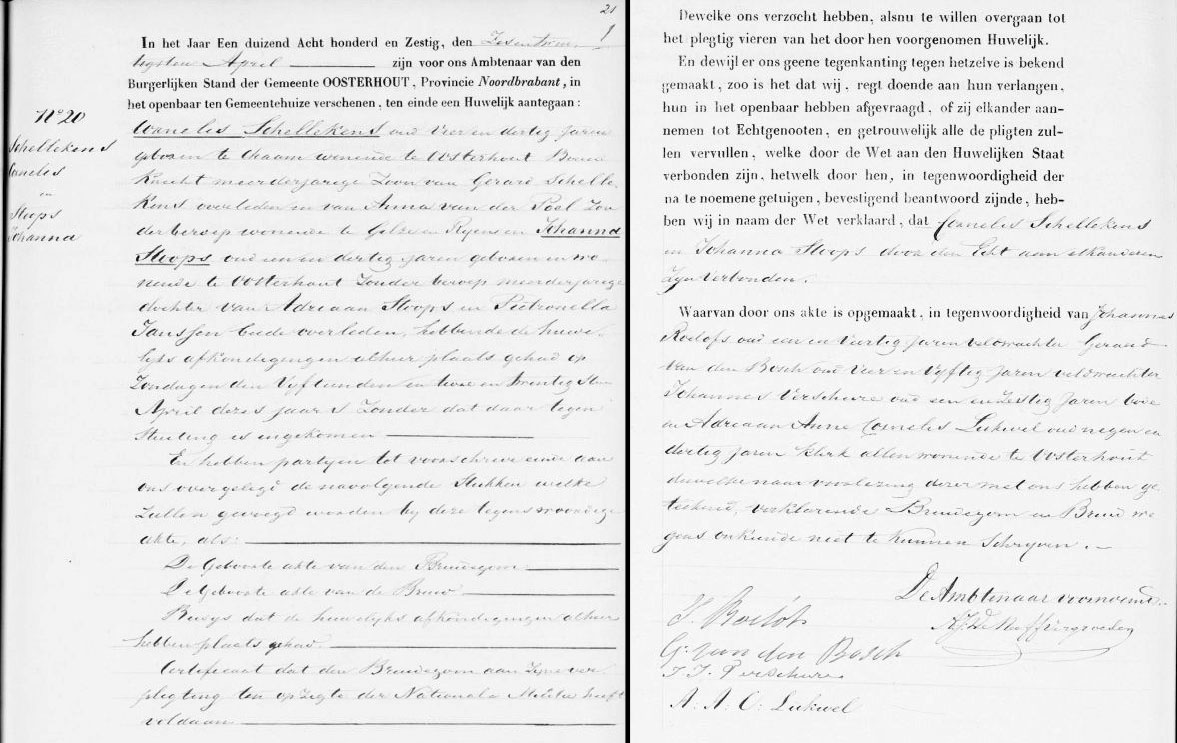 21
1
In het Jaar Een duizend Acht honderd en Zestig, den Zesentwin
tigsten April zijn voor ons Ambtenaar van den
Burgerlijken Stand der Gemeente OOSTERHOUT, Provincie Noordbrabant, in
het openbaar ten Gemeentehuize verschenen, ten einde een Huwelijk aantegaan:
N° 20
Schellekens
Cornelis
en
Stoops
Johanna
Cornelis Schellekens oud vier en dertig Jaren
geboren te Chaam wonende te Oosterhout Bouw
knecht meerderjarige Zoon van Gerard Schelle
kens overleden en van Anna van der Poel Zon
der beroep wonende te Gilze en Ryen en Johanna
Stoops oud een en dertig Jaren geboren en wo
nende te Oosterhout Zonder beroep meerderjarige
dochter van Adriaan Stoops en Pieternella
Janssen beide overleden, hebbende de huwe
lyks afkondigingen alhier plaats gehad op
Zondagen den Vyftienden en twee en twintigsten
April dezes jaars Zonder dat daar tegen
Stuiting is ingekomen
En hebben partyen tot voorschreve einde aan
ons overgelegd de navolgende Stukken welke
Zullen gevoegd worden by deze tegenwoordige
akte, als:
De Geboorte akte van den Bruidegom
De Geboorte akte van de Bruid
Bewys dat de huwelyks afkondigingen alhier
hebben plaats gehad
Certificaat dat den Bruidegom aan Zyne ver
pligting ten opzigte der Nationale Militie heeft
voldaan
Dewelke ons verzocht hebben, alsnu te willen overgaan tot
het plegtig vieren van het door hen voorgenomen Huwelijk.
En dewijl er ons geene tegenkanting tegen hetzelve is bekend
gemaakt, zoo is het dat wij, regt doende aan hun verlangen,
hun in het openbaar hebben afgevraagd, of zij elkander aan-
nemen tot Echtgenooten, en getrouwelijk alle de pligten zul-
len vervullen, welke door de Wet aan den Huwelijken Staat
verbonden zijn, hetwelk door hen, in tegenwoordigheid der
na te noemene getuigen, bevestigend beantwoord zijnde, heb-
ben wij in naam der Wet verklaard, dat Cornelis Schellekens
en Johanna Stoops door den Echt aan elkanderen
Zyn verbonden.
Waarvan door ons akte is opgemaakt, in tegenwoordigheid van Johannes
Roelofs oud een en veertig Jaren veldwachter Gerard
van den Bosch oud vier en vyftig Jaren veldwachter
Johannes Verschure oud een en Zestig Jaren bode
en Adriaan Anne Cornelis Lukwel oud negen en
dertig Jaren klerk allen wonende te Oosterhout
dewelke naar voorlezing dezer met ons hebben ge
teekend, verklarende Bruidegom en Bruid we
gens onkunde niet te kunnen Schryven.
De Ambtenaar voornoemd
J. Roelofs
G. van den Bosch
J. J. Verschure
A: A: C: Lukwel